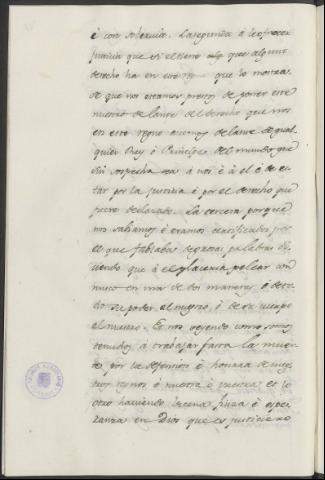 è con soberuia. La segunda à le ofrecer
justicia que si el tiene algo que algun
derecho ha en este regno que lo mostrà
de que nos estamos prestos de poner este
nuestro delante del derecho que nos
en este regno avemos delante de qual
quier Rey ò Principe del mundo que
sin sospecha sea à nos è à el è de es
tar por la justicia è por el derecho que
fuere declarado. La tercera porque
nos sabiamos è eramos certificados por
el que fablaba de pocas palabras di
ciendo que à el placeria pelear con
nusco en una de dos maneras, ò de to
do su poder al nuestro, ò de su cuerpo
al nuestro. E nos veyendo como somos
tenudos à trabajar fasta la muer
te por la defension è honara de nues
tros regnos è nuestra è vuestra et lo
otro haviendo buena fiuza è espe
ranza en Dios que es justiciero